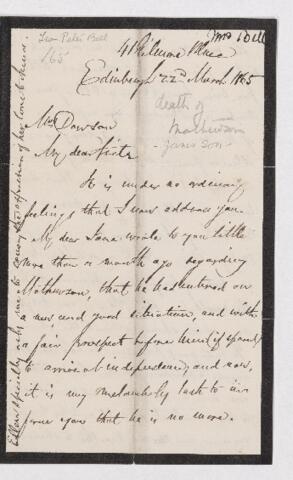 Mrs Bell
from Peter Bell
/65
4 Pilmuir Place
Edinburgh 22d March 1865
death of
Mathewson
Janes Son
Mrs Dowson
My dear Sister
It is under no ordinary
feelings that I now address you.
My dear Jane wrote to you little
more than a month ago regarding
Mathewson, that he had entered on
a new and good situation, and with
a fair prospect before him (if spared)
to arrive at independence, and now,
it is my melancholy task to in
form you that he is no more.
Ellen specially asks me to convey the expression of her love & cheer.